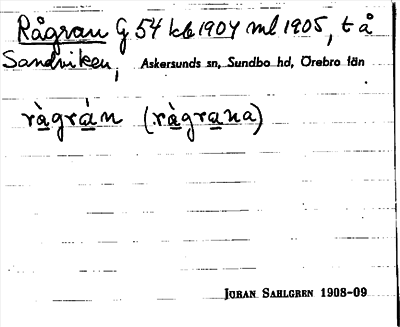 Rågran G 54 kb 1904 ml 1905, t å
Sandviken, Askersunds sn, Sundbo hd, Örebro län
ràgràn (ràgrana)
JÖRAN SAHLGREN 1908-09